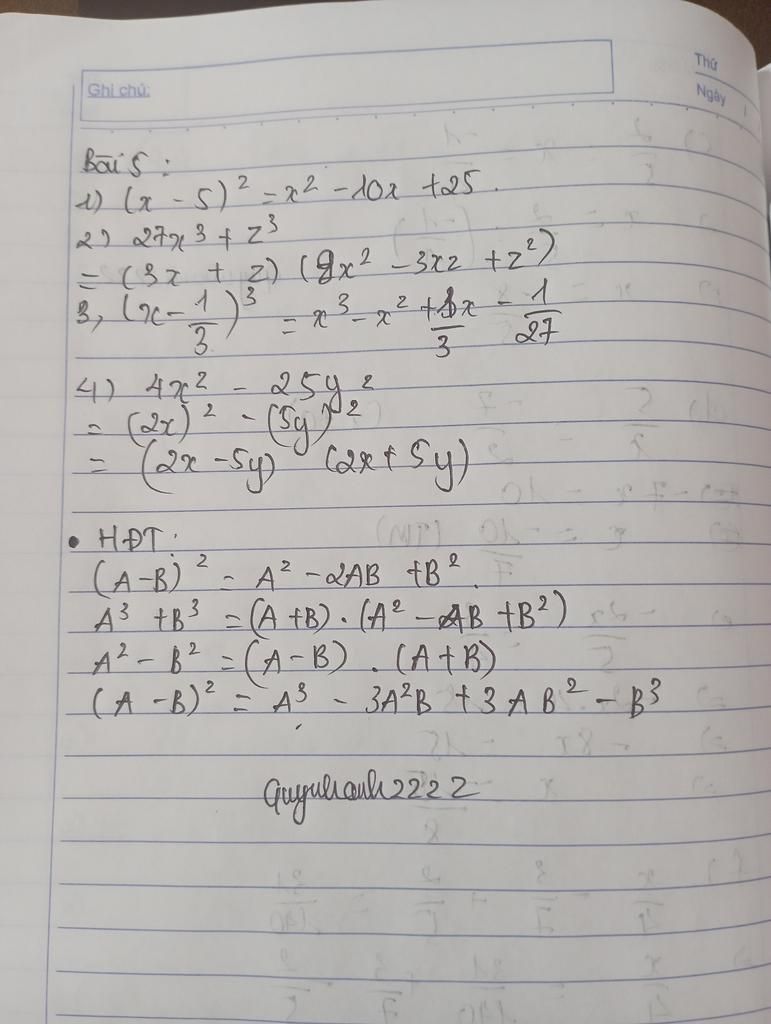 Ghi chú:
Thứ
Ngày
Bài 5 :
1) (x - 5)² = x² - 10x + 25.
2) 27x³ + z³
= (3x + z) (9x² - 3xz + z²)
3, (x - 1/3)³ = x³ - x² + 1/3 x - 1/27
4) 4x² - 25y²
= (2x)² - (5y)²
= (2x - 5y) (2x + 5y)
• HĐT:
(A - B)² = A² - 2AB + B².
A³ + B³ = (A + B) . (A² - AB + B²)
A² - B² = (A - B) . (A + B)
(A - B)² = A³ - 3A²B + 3AB² - B³
Quynhanh2222